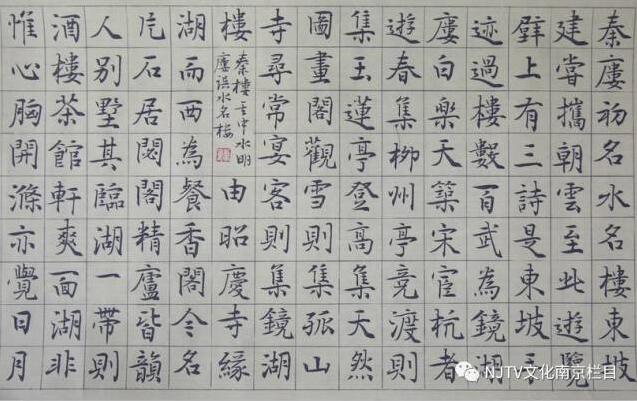 秦廔初名水名樓東坡
建嘗攜朝雲至此遊覽
壁上有三詩是東坡手
迹過樓數百武為鏡湖
廔白樂天築宋宦杭者
遊春集柳州亭競渡則
集玉蓮亭登高集天然
圖畫閣觀雪則集孤山
寺尋常宴客則集鏡湖
樓
秦樓中水明
廔誤水名樓
由昭慶寺緣
湖而西為餐香閣今名
片石居閟閣精廬皆韻
人別墅其臨湖一帶則
酒樓茶館軒爽面湖非
惟心胸開滌亦覺日月
NJTV文化南京栏目